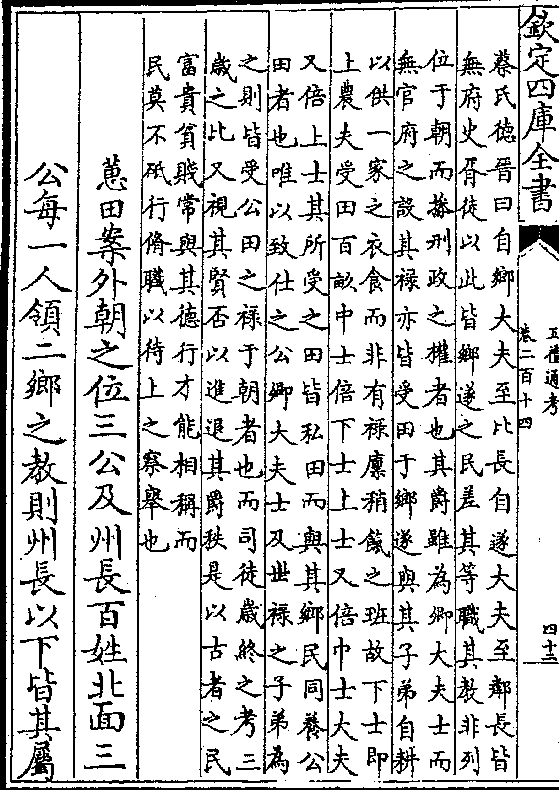 欽定四庫全書
五禮通考
卷二百十四
四十三
蔡氏德晉曰自鄉大夫至比長自遂大夫至鄰長皆
無府史胥徒以此皆鄉遂之民差其等職其教非列
位于朝而操刑政之權者也其爵雖為卿大夫士而
無官府之設其祿亦皆受田于鄉遂與其子弟自耕
以供一家之衣食而非有祿廩稍餼之班故下士即
上農夫受田百畝中士倍下士上士又倍中士大夫
又倍上士其所受之田皆私田而與其鄉民同養公
田者也唯以致仕之公卿大夫士及世祿之子弟為
之則皆受公田之祿于朝者也而司徒歳終之考三
歳之比又視其賢否以進退其爵秩是以古者之民
富貴貧賤常與其德行才能相稱而
民莫不砥行脩職以待上之察舉也
蕙田案外朝之位三公及州長百姓北面三
公每一人領二鄉之教則州長以下皆其屬